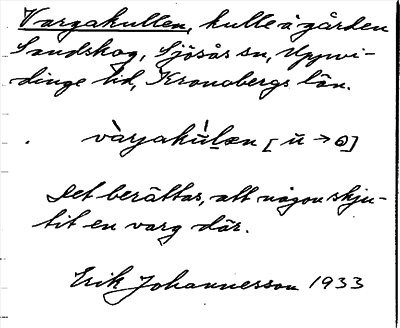 Vargakullen, kulle å gården
Sandskog, Sjösås sn, Uppvi-
dinge hd, Kronobergs län.
vàrjakúlæn [u → ɵ]
Det berättas, att någon skju-
tit en varg där.
Erik Johannesson 1933